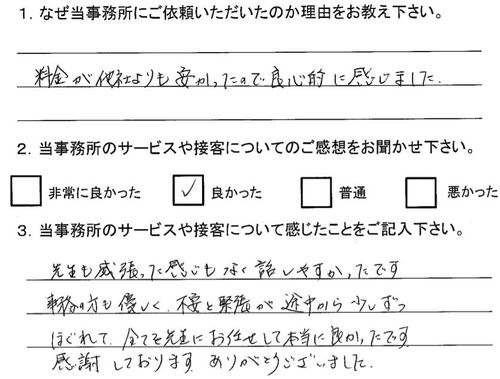 1. なぜ当事務所にご依頼いただいたのか理由をお教え下さい。
料金が他社よりも安かったので良心的に感じました。
2. 当事務所のサービスや接客についてのご感想をお聞かせ下さい。
非常に良かった ✓ 良かった 普通 悪かった
3. 当事務所のサービスや接客について感じたことをご記入下さい。
先生も威張った感じもなく話しやすかったです
事務の方も優しく、不安と緊張が途中から少しずつ
ほぐれて、全てを先生にお任せして本当に良かったです
感謝しております ありがとうございました。